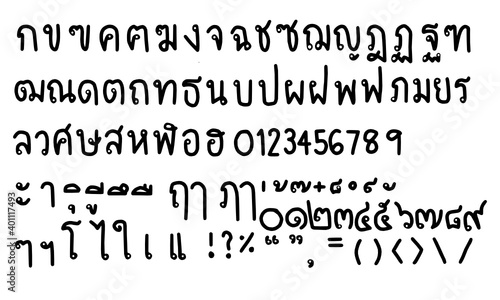 กขฃคฅฆงจฉชซฌญฎฏฐฑ
ฒณดตถทธนบปผฝพฟภมยร
ลวศษสหฬอฮ 0123456789
ะ า ิ ุ ี ู ึ ื ฤๅ ฦๅ ่ ้ ๊ ๋ ็ ํ ์ ั ๐๑๒๓๔๕๖๗๘๙
ๆ ฯ โ ไ ใ เ แ ! ? % “ ” , = ( ) < > \ /
#401117493
Adobe Stock